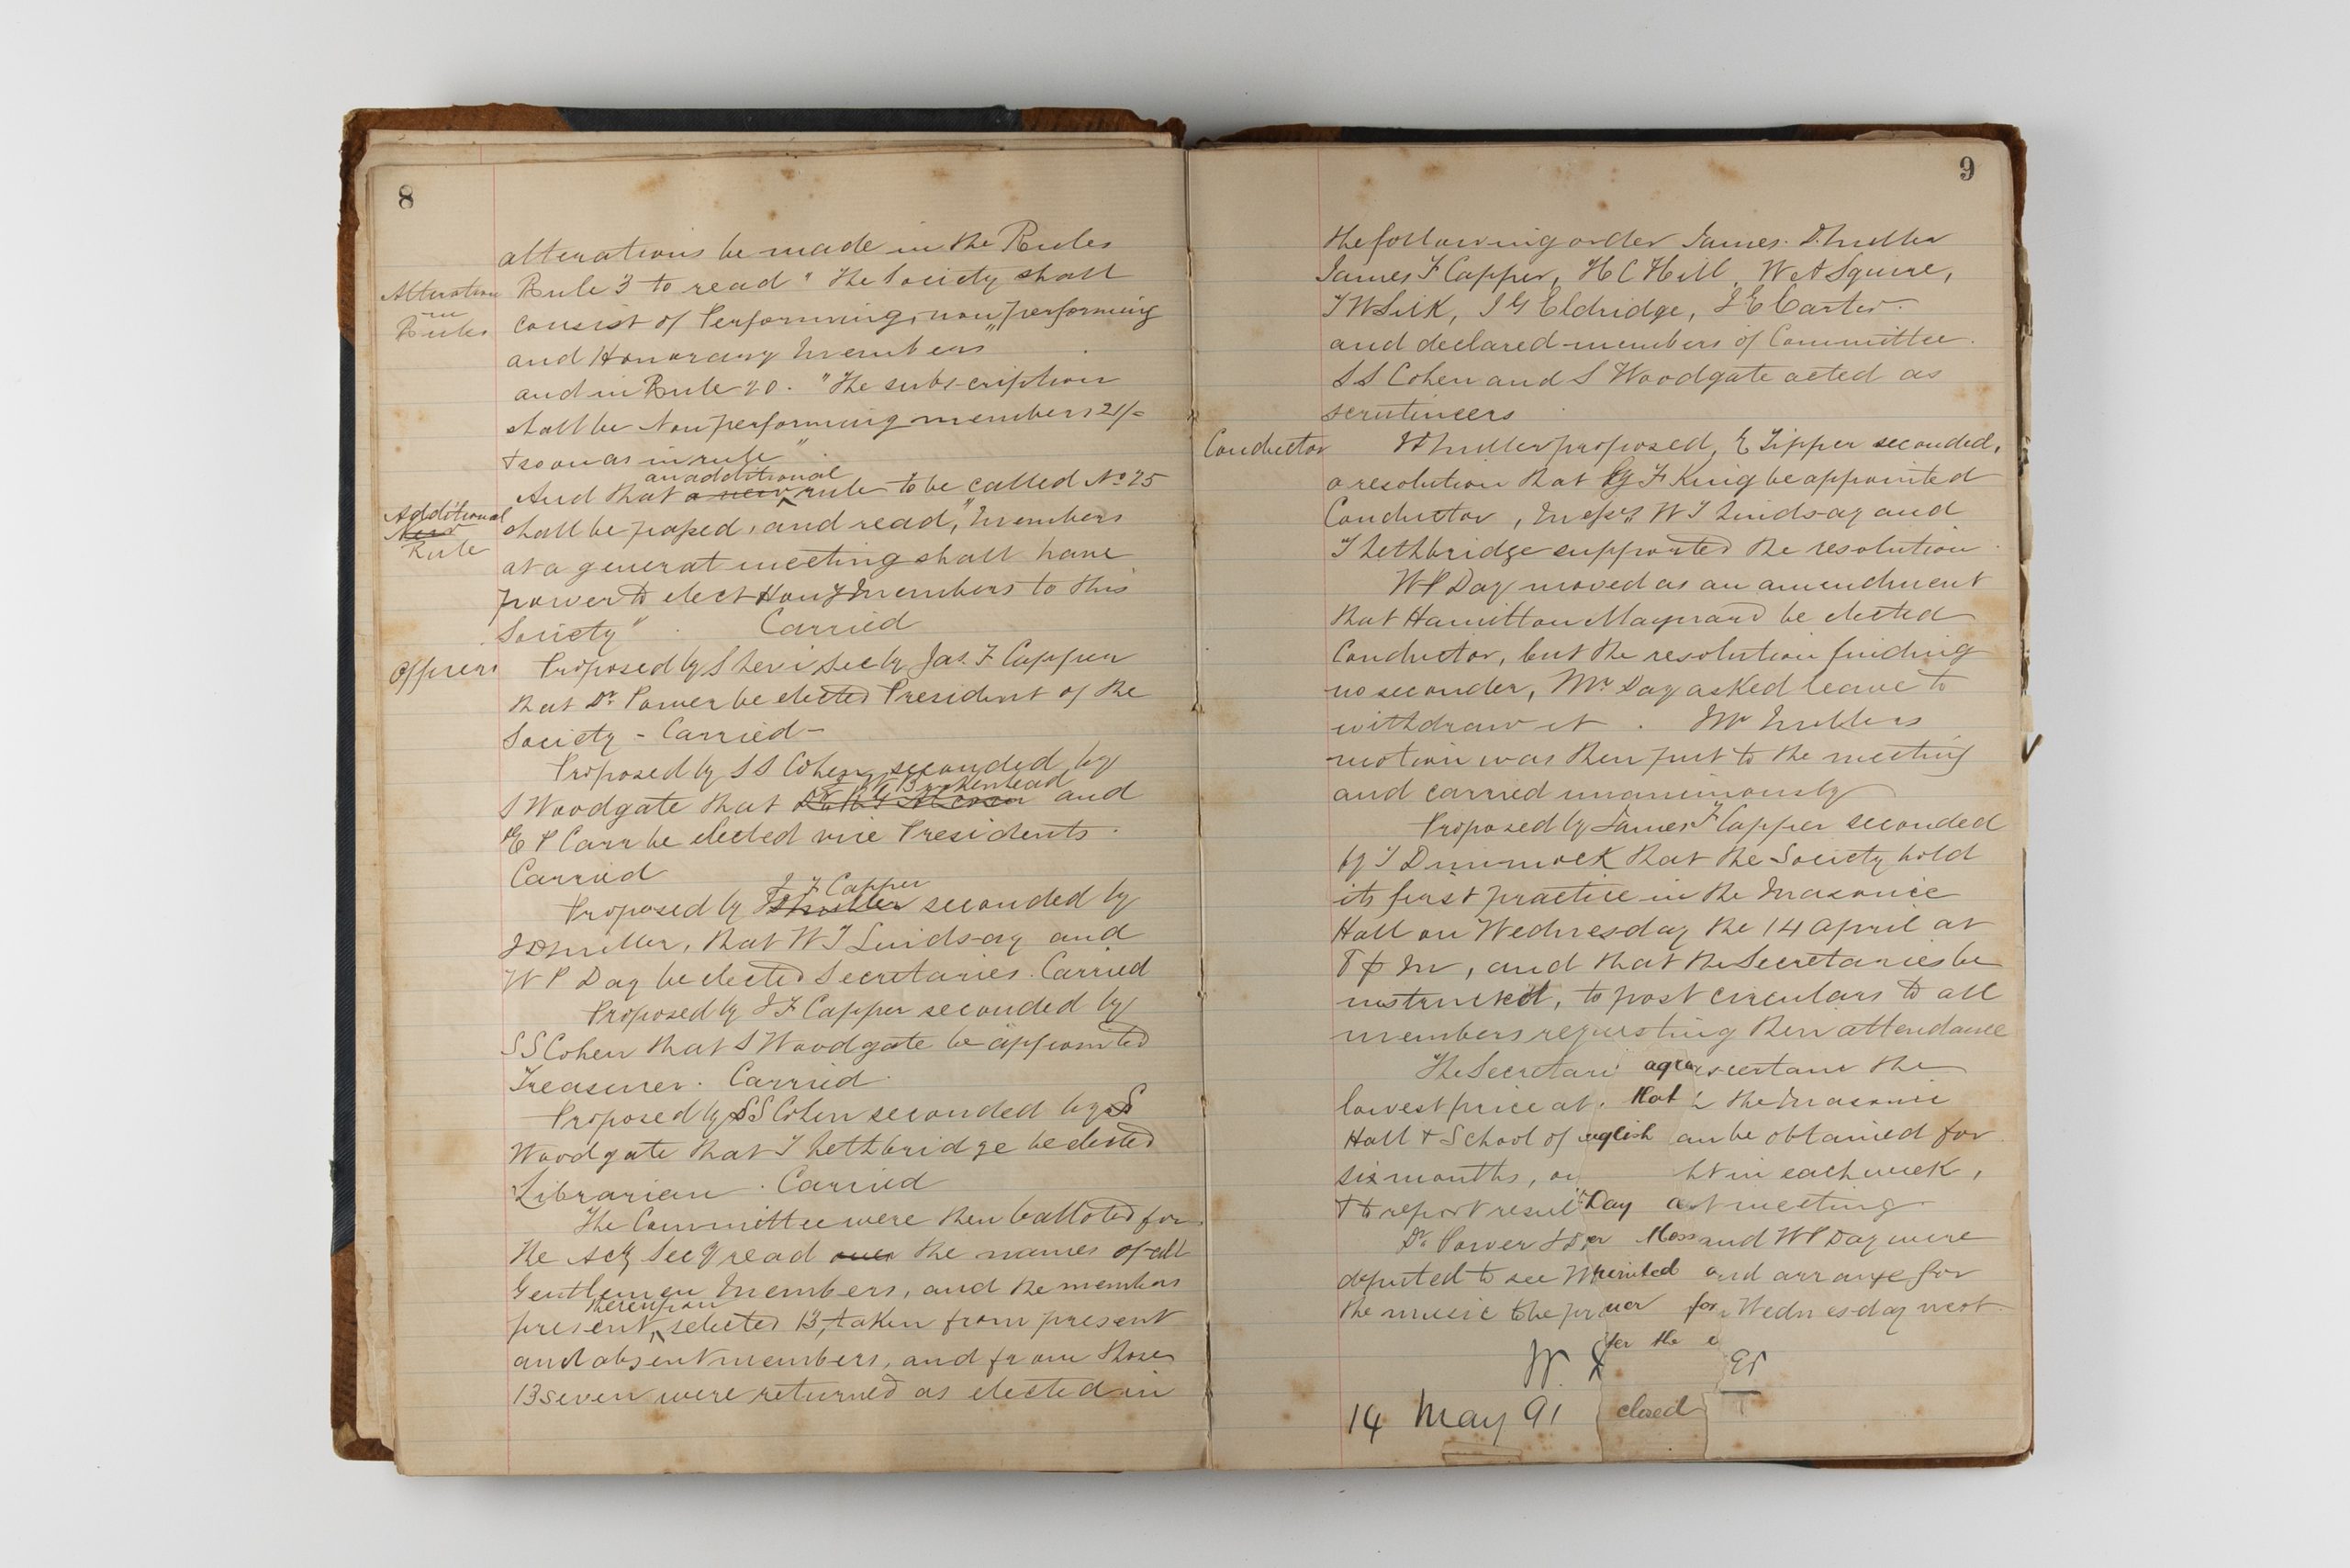 8
alterations be made in the Rules
Alteration
in
Rules
Rule 3 to read " The Society shall
consist of Performing, non performing
and Honorary Members "
and in Rule 20. "The subscription
shall be Non performing members 21/=
& so on as in rule "
an additional
And that a new rule to be called No 25
Additional
New
Rule
shall be passed, and read, "Members
at a general meeting shall have
power to elect Hony Members to this
Society" . Carried
Officers
Proposed by S Levi Sec by Jas. F Capper
that Dr Power be elected President of the
Society - Carried -
Proposed by S S Cohen seconded by
Birkenhead
S Woodgate that and
E P Carr be elected vice Presidents.
Carried
J F Capper
Proposed by seconded by
J D Miller, that W T Lindsay and
W P Day be elected Secretaries. Carried
Proposed by J F Capper seconded by
S S Cohen that S Woodgate be appointed
Treasurer. Carried.
Proposed by S S Cohen seconded by S
Woodgate that T Lethbridge be elected
Librarian. Carried
The Committee were then balloted for.
The Actg Secy read over the names of all
Gentlemen Members, and the members
thereupon
present, selected 13, taken from present
and absent members, and from those
13 seven were returned as elected in
9
the following order James. D. Miller
James F Capper, H C Hill, W A Squire,
T W Silk, J G Eldridge, J E Carter.
and declared members of Committee.
S S Cohen and S Woodgate acted as
scrutineers
Conductor
Miller proposed, E Tipper seconded,
a resolution that G F King be appointed
Conductor, Messrs W T Lindsay and
T Lethbridge supported the resolution.
W P Day moved as an amendment
that Hamilton Maynard be elected
Conductor, but the resolution finding
no seconder, Mr Day asked leave to
withdraw it . Mr Millers
motion was then put to the meeting
and carried unanimously
Proposed by James F Capper seconded
by T Dimmock that the Society hold
its first practice in the Masonic
Hall on Wednesday the 14 April at
8 p m, and that the Secretaries be
instructed, to post circulars to all
members requesting their attendance
The Secretari agr ascertain the
lowest price at. that the Masonic
Hall & School of nglish an be obtained for
six months, on ht in each week,
& to report result Day at meeting
Dr Power & Moss and W P Day were
deputed to see M and arrange for
the music to be pr for Wednesday next
for the e
W. T
14 May 91 closed